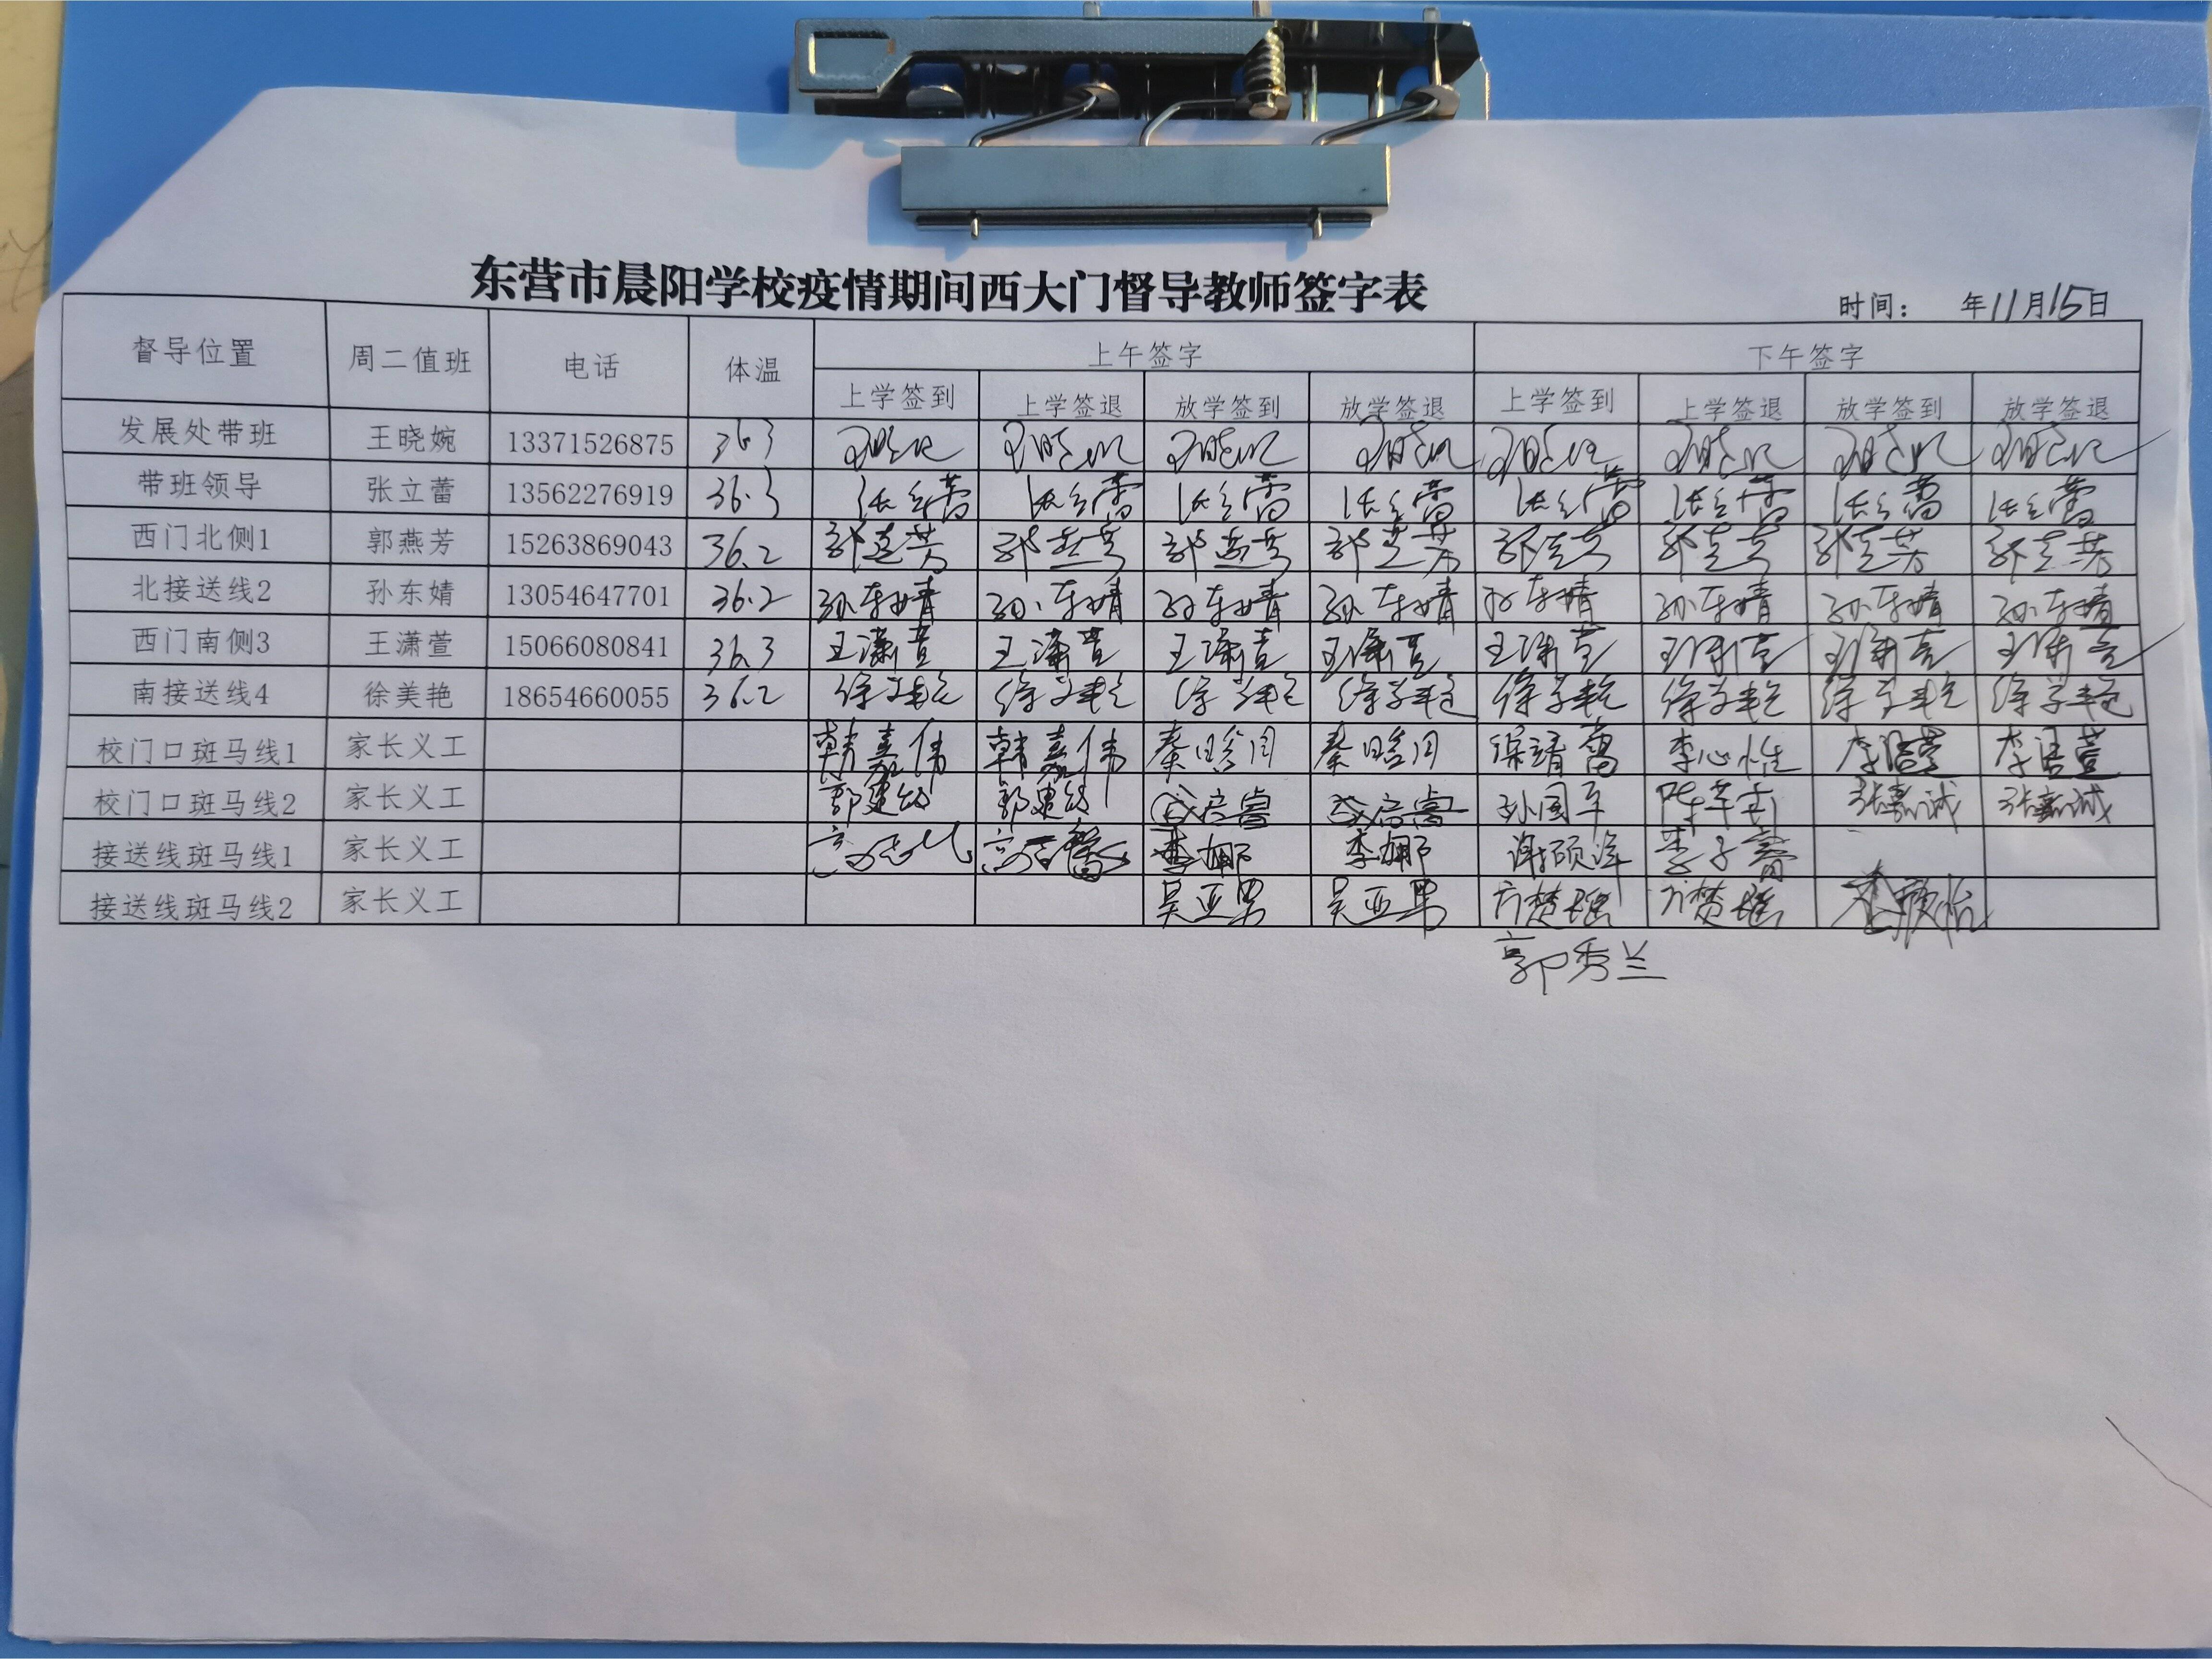 东营市晨阳学校疫情期间西大门督导教师签字表
时间： 年11月15日
督导位置 周二值班 电话 体温 上午签字 下午签字
上学签到 上学签退 放学签到 放学签退 上学签到 上学签退 放学签到 放学签退
发展处带班 王晓婉 13371526875 36.3 王晓婉 王晓婉 王晓婉 王晓婉 王晓婉 王晓婉 王晓婉 王晓婉
带班领导 张立蕾 13562276919 36.3 张立蕾 张立蕾 张立蕾 张立蕾 张立蕾 张立蕾 张立蕾 张立蕾
西门北侧1 郭燕芳 15263869043 36.2 郭燕芳 郭燕芳 郭燕芳 郭燕芳 郭燕芳 郭燕芳 郭燕芳 郭燕芳
北接送线2 孙东婧 13054647701 36.2 孙东婧 孙东婧 孙东婧 孙东婧 孙东婧 孙东婧 孙东婧 孙东婧
西门南侧3 王潇萱 15066080841 36.3 王潇萱 王潇萱 王潇萱 王潇萱 王潇萱 王潇萱 王潇萱 王潇萱
南接送线4 徐美艳 18654660055 36.2 徐美艳 徐美艳 徐美艳 徐美艳 徐美艳 徐美艳 徐美艳 徐美艳
校门口斑马线1 家长义工 韩嘉伟 韩嘉伟 李心怡
校门口斑马线2 家长义工 孙国平 张嘉诚 张嘉诚
接送线斑马线1 家长义工 李娜 李娜 谢硕洋 李子睿
接送线斑马线2 家长义工 吴亚男 吴亚男 方楚瑶 方楚瑶 李颜怡
郭秀兰